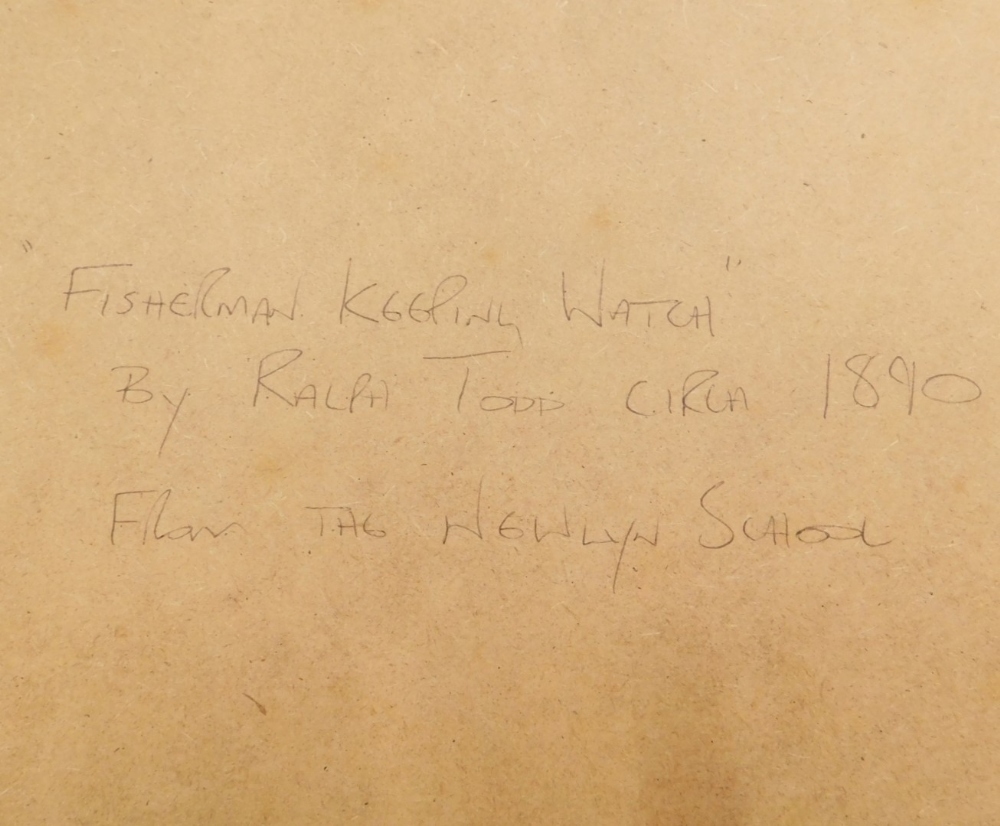 "Fisherman Keeping Watch"
By Ralph Todd circa 1890
From the Newlyn School